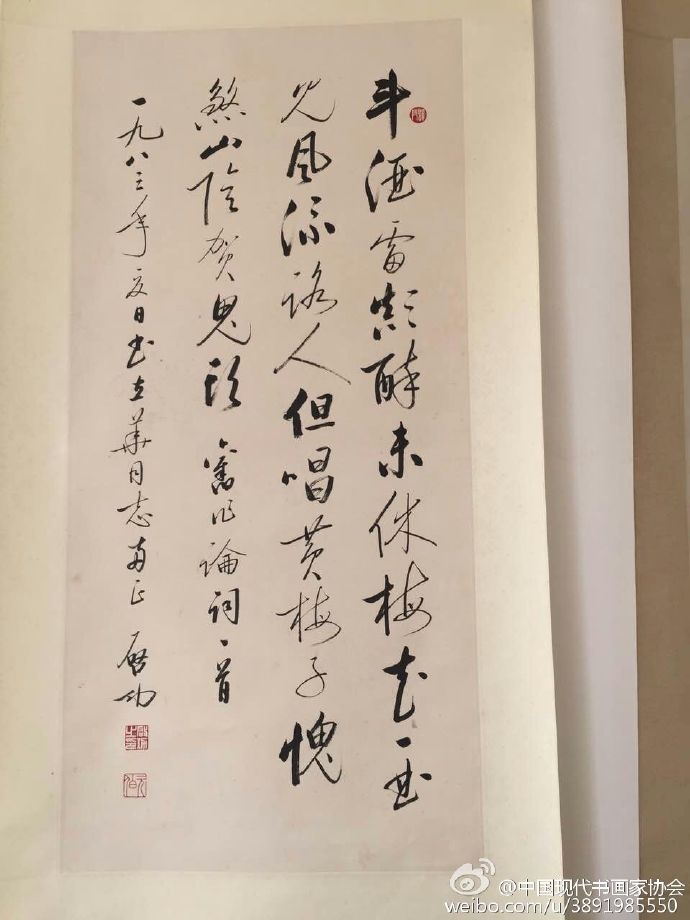 斗酒雷颠醉未休梅花一曲
见风流路人但唱黄梅子愧
煞山陰贺鬼头 舊作論詞一首
一九八三年夏日书 立華同志正 啟功
@中国现代书画家协会
weibo.com/u/3891985550